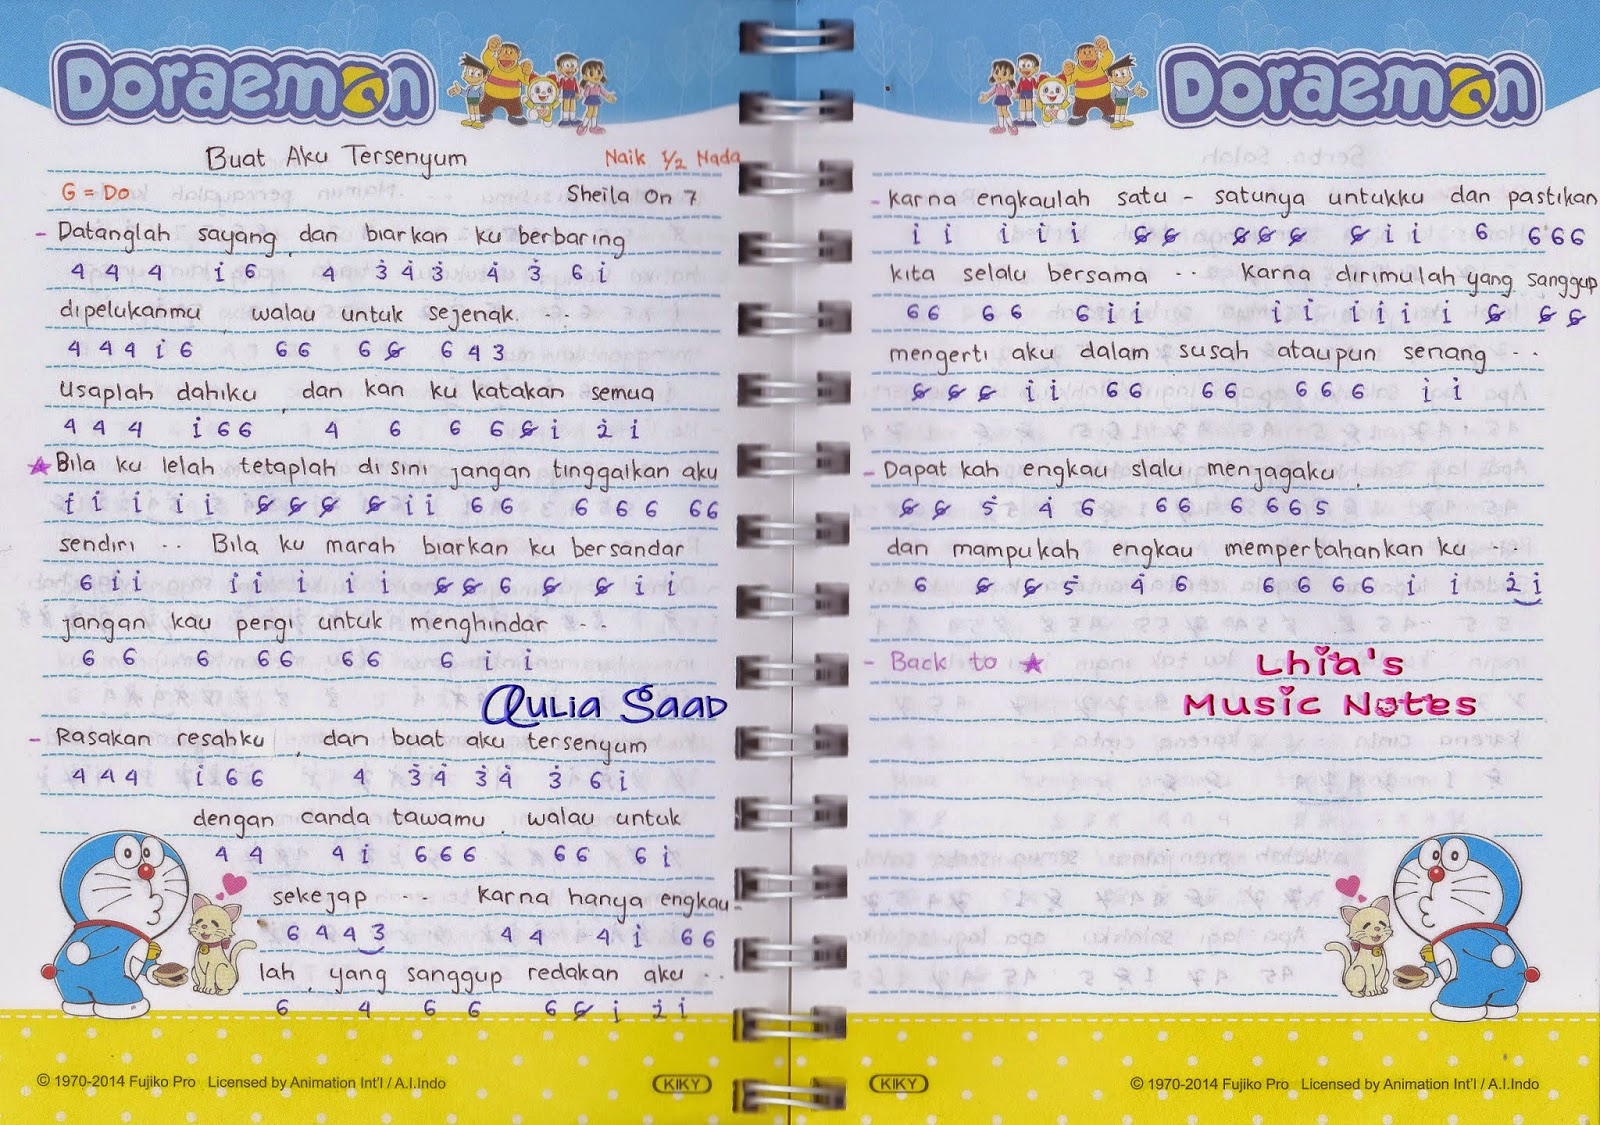 Doraemon
Buat Aku Tersenyum Naik 1/2 Nada
G = Do Sheila On 7
- Datanglah sayang, dan biarkan ku berbaring
4 4 4 i 6 4 3̇ 4̇ 3̇ 4̇ 3̇ 6 i
dipelukanmu, walau untuk sejenak. . .
4 4 4 i 6 6 6 6 6̸ 6 4 3
Usaplah dahiku, dan kan ku katakan semua
4 4 4 i 6 6 4 6 6 6 6̸ i 2̇ i
★ Bila ku lelah tetaplah di sini jangan tinggalkan aku
i i i i i 6̸ 6̸ 6̸ 6̸ i i 6 6 6 6 6 6 6
sendiri .. Bila ku marah biarkan ku bersandar
6 i i i i i i i 6̸ 6̸ 6 6̸ 6̸ i i
jangan kau pergi untuk menghindar ..
6 6 6 6 6 6 6 6 i i
Aulia Saad
- Rasakan resahku, dan buat aku tersenyum
4 4 4 i 6 6 4 3̇ 4̇ 3̇ 4̇ 3̇ 6 i
dengan canda tawamu, walau untuk
4 4 4 i 6 6 6 6 6 6 i
sekejap ... Karna hanya engkau-
6 4 4 3 4 4 4 i 6 6
lah, yang sanggup redakan aku ..
6 4 6 6 6 6̸ i 2̇ i
© 1970-2014 Fujiko Pro Licensed by Animation Int'l / A.I.Indo
KIKY
Doraemon
- Karna engkaulah satu - satunya untukku dan pastikan
i i i i i 6̸ 6̸ 6̸ 6̸ 6̸ 6̸ i i 6 6 6 6
kita selalu bersama .. Karna dirimulah yang sanggup
6 6 6 6 6 i i i i i i i i 6̸ 6̸ 6̸
mengerti aku dalam susah ataupun senang ..
6̸ 6̸ 6̸ i i 6 6 6 6 6 6 6 i i
- Dapat kah engkau slalu menjagaku,
6̸ 6̸ 5̇ 4̇ 6 6 6 6 6 6 5
dan mampukah engkau mempertahankan ku ...
6 6̸ 6̸ 5̇ 4̇ 6 6 6 6 6 i i 2̇ i
- Back to ★
Lhia's
Music Notes
KIKY
© 1970-2014 Fujiko Pro Licensed by Animation Int'l / A.I.Indo